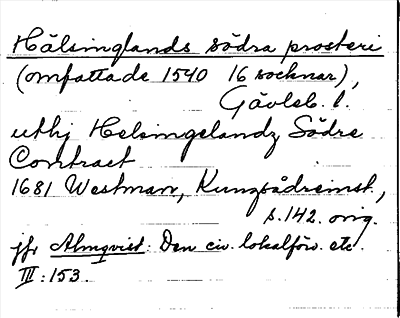 Hälsinglands södra prosteri
(omfattade 1540 16 socknar),
Gävleb. l.
uthj Helsingelandz Södre
Contract
1681 Westman, Kungsådreinst.,
s. 142. orig.
jfr Almqvist: Den civ. lokalförv. etc.
III: 153.